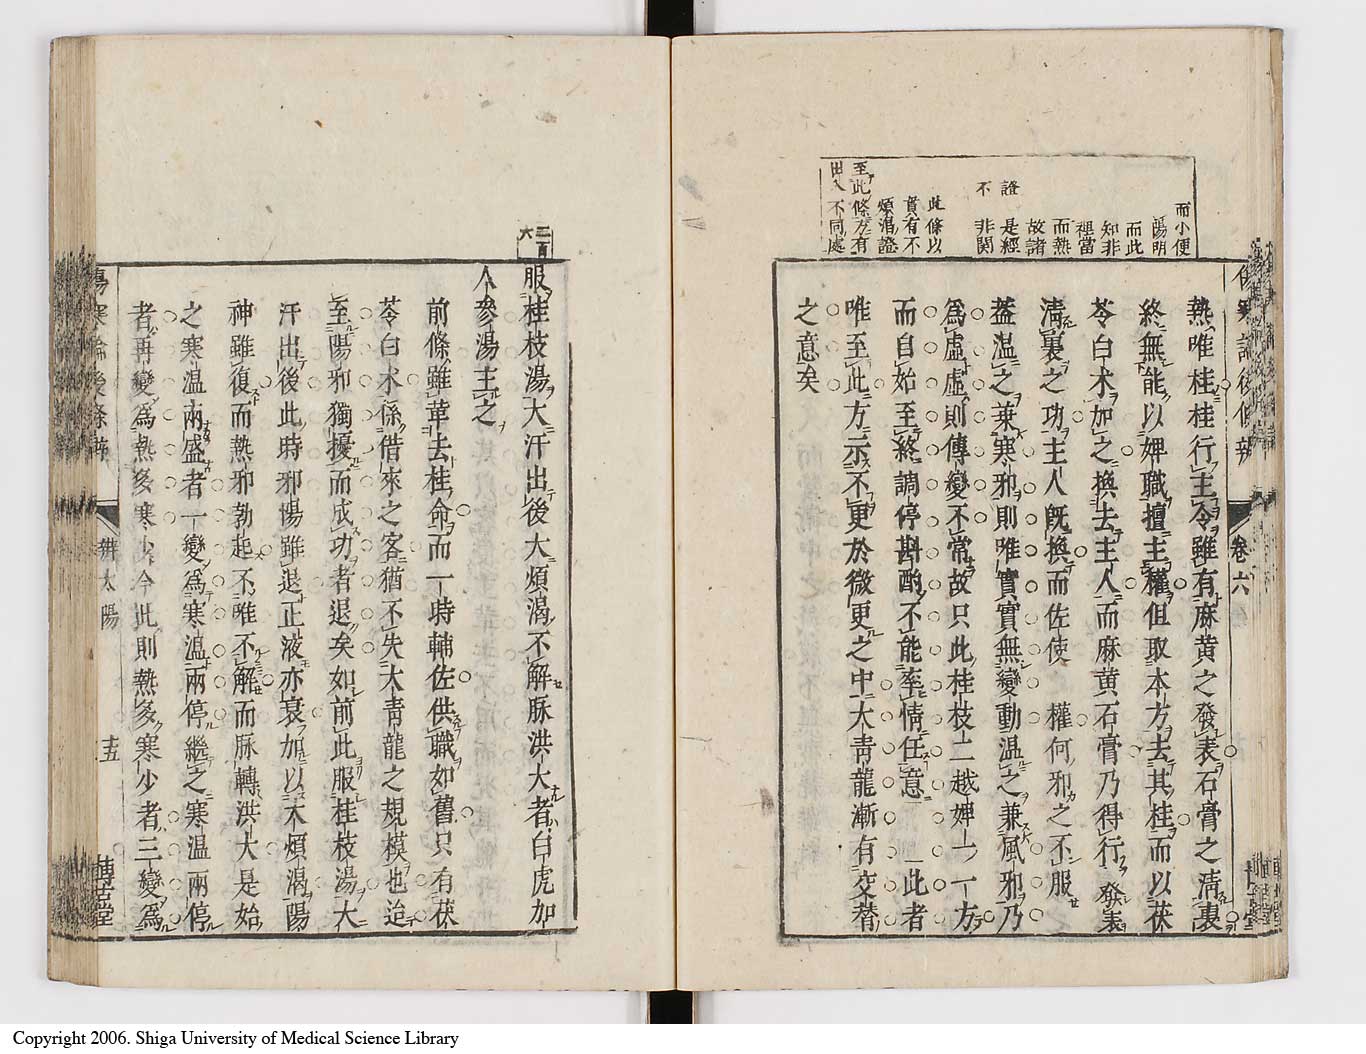 傷寒論後條辨
卷六
熱唯桂桂行主令雖有麻黃之發表石膏之淸裏
終無能以婢職擅主權但取本方去其桂而以茯
苓白术加之換去主人而麻黃石膏乃得行發表
淸裏之功主人旣換而佐使之權何邪之不服
葢温之兼寒邪則唯實實無變動温之兼風邪乃
爲虛虛則傳變不常故只此桂枝二越婢一一方
而自始至終調停斟酌不能率情任意一此者
唯至此方示不更於微更之中大青龍漸有交替
之意矣
而小便
陽明
而此
知非
裡當
而熱
故諸
是經
證
非関
不
此條以
貴有不
煩渴證
至此條方有
出入不同處
二百
六
服桂枝湯大汗出後大煩渴不解脉洪大者白虎加
人參湯主之
前條雖革去桂命而一時輔佐供職如舊只有茯
苓白术係借來之客猶不失大青龍之規模也迨
至陽邪獨擾而成功者退矣如前此服桂枝湯大
汗出後此時邪惕雖退正液亦衰加以大煩渴陽
神雖復而熱邪勃起不唯不解而脉轉洪大是始
之寒温兩盛者一變爲寒温兩停繼之寒温兩停
者再變爲熱多寒少今此則熱多寒少者三變爲
傷寒論後條辨
辨太陽
十五
博古堂
Copyright 2006. Shiga University of Medical Science Library